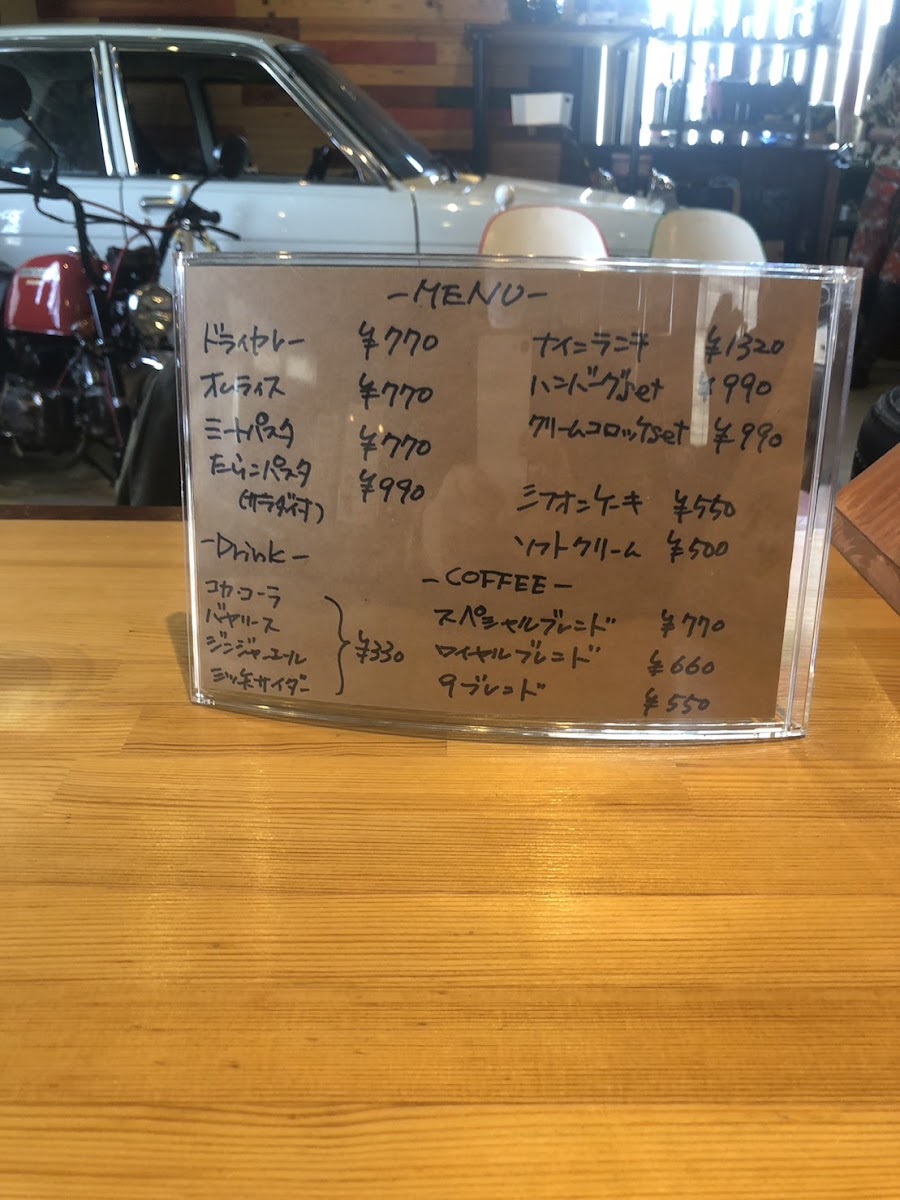 -MENU-
ドライカレー ¥770
オムライス ¥770
ミートパスタ ¥770
たらこパスタ ¥990
(サラダ付)
ナインランチ ¥1320
ハンバーグset ¥990
クリームコロッケset ¥990
シフォンケーキ ¥550
ソフトクリーム ¥500
-Drink-
コカ・コーラ
バヤリース
ジンジャーエール
三ツ矢サイダー
¥330
-COFFEE-
スペシャルブレンド ¥770
ロイヤルブレンド ¥660
9ブレンド ¥550